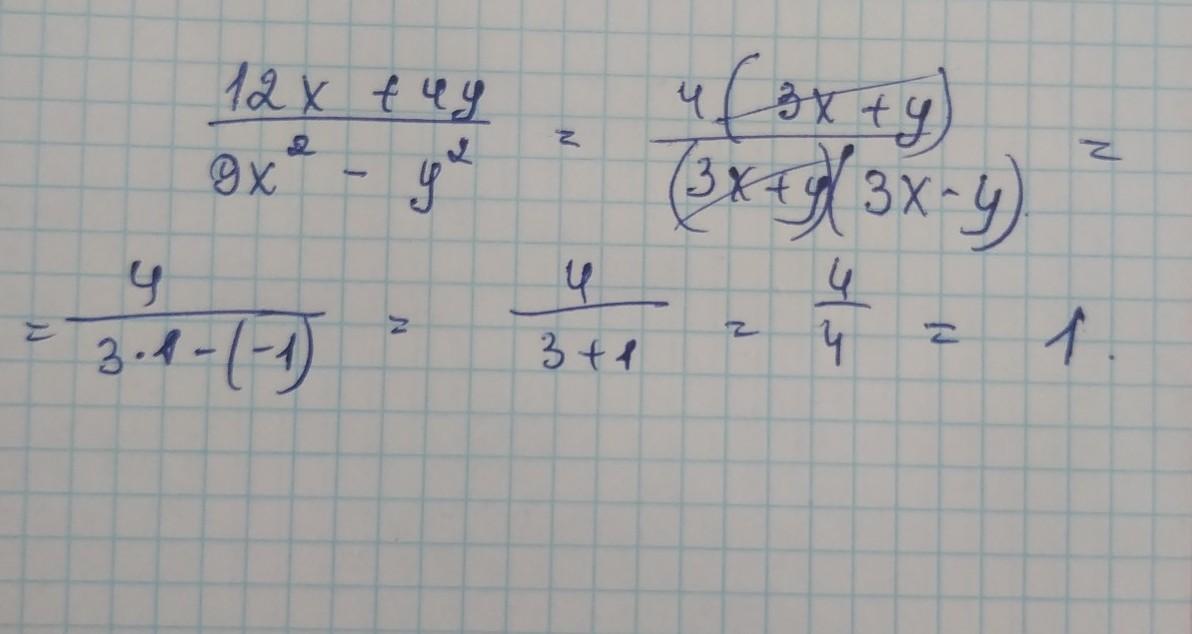 (12x + 4y)/(9x² - y²) = 4(3x + y)/((3x+y)(3x-y)) =
= 4/(3·1-(-1)) = 4/(3+1) = 4/4 = 1.